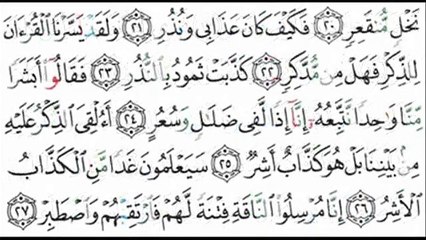 نَخْلٍ مُّنقَعِرٍ ٢٠ فَكَيْفَ كَانَ عَذَابِي وَنُذُرِ ٢١ وَلَقَدْ يَسَّرْنَا الْقُرْءَانَ
لِلذِّكْرِ فَهَلْ مِن مُّدَّكِرٍ ٢٢ كَذَّبَتْ ثَمُودُ بِالنُّذُرِ ٢٣ فَقَالُوا أَبَشَرًا
مِّنَّا وَاحِدًا نَّتَّبِعُهُ إِنَّا إِذًا لَّفِي ضَلَالٍ وَسُعُرٍ ٢٤ أَءُلْقِيَ الذِّكْرُ عَلَيْهِ
مِنۢ بَيْنِنَا بَلْ هُوَ كَذَّابٌ أَشِرٌ ٢٥ سَيَعْلَمُونَ غَدًا مَّنِ الْكَذَّابُ
الْأَشِرُ ٢٦ إِنَّا مُرْسِلُوا النَّاقَةِ فِتْنَةً لَّهُمْ فَارْتَقِبْهُمْ وَاصْطَبِرْ ٢٧